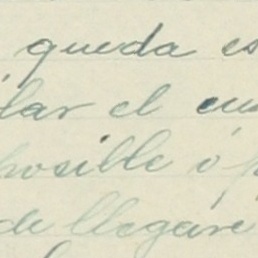 queda es
lar el cu
posible ó p
de llegare